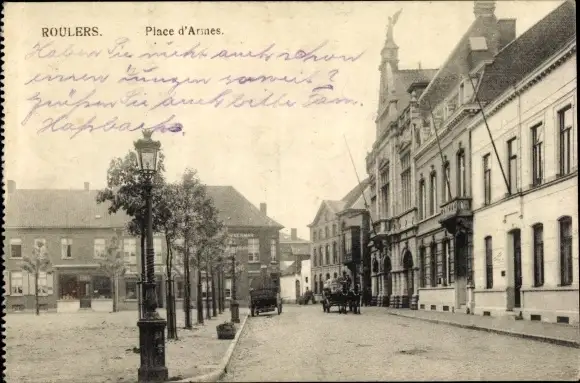 ROULERS. Place d'Armes.
Haben Sie nicht auch schon
einen Jungen soweit?
Grüßen Sie auch bitte Fam.